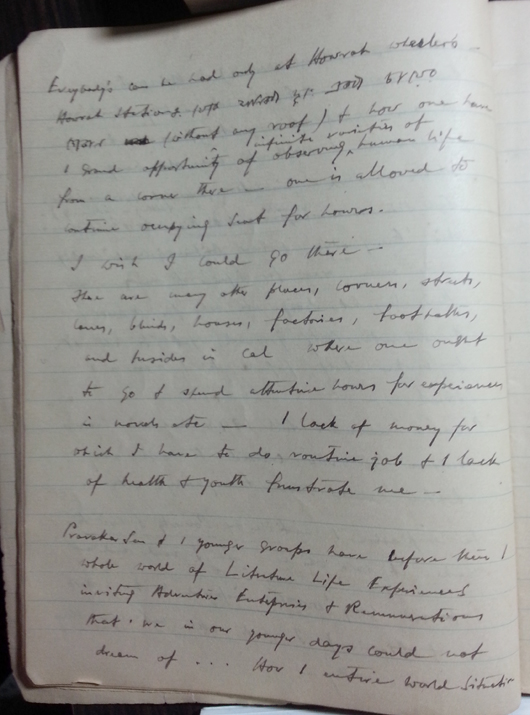 Everybody's can be had only at Howrah wheeler's
Howrah Station
(without any roof) & how one have
infinite varieties of
1 Grand opportunity of observing human life
from a corner there — one is allowed to
continue occupying seat for hours.
I wish I could go there —
there are many other places, corners, streets,
lanes, blinds, houses, factories, footpaths,
and besides in Cal where one ought
to go & spend attentive hours for experiences
in novels etc — 1 lack of money for
which I have to do routine job & 1 lack
of health & youth frustrate me —
Pravakar Sen & 1 younger groups have before them 1
whole world of Literature Life Experiences
inviting Adventure Enterprises & Remunerations
that we in our younger days could not
dream of ... How 1 entire world situation